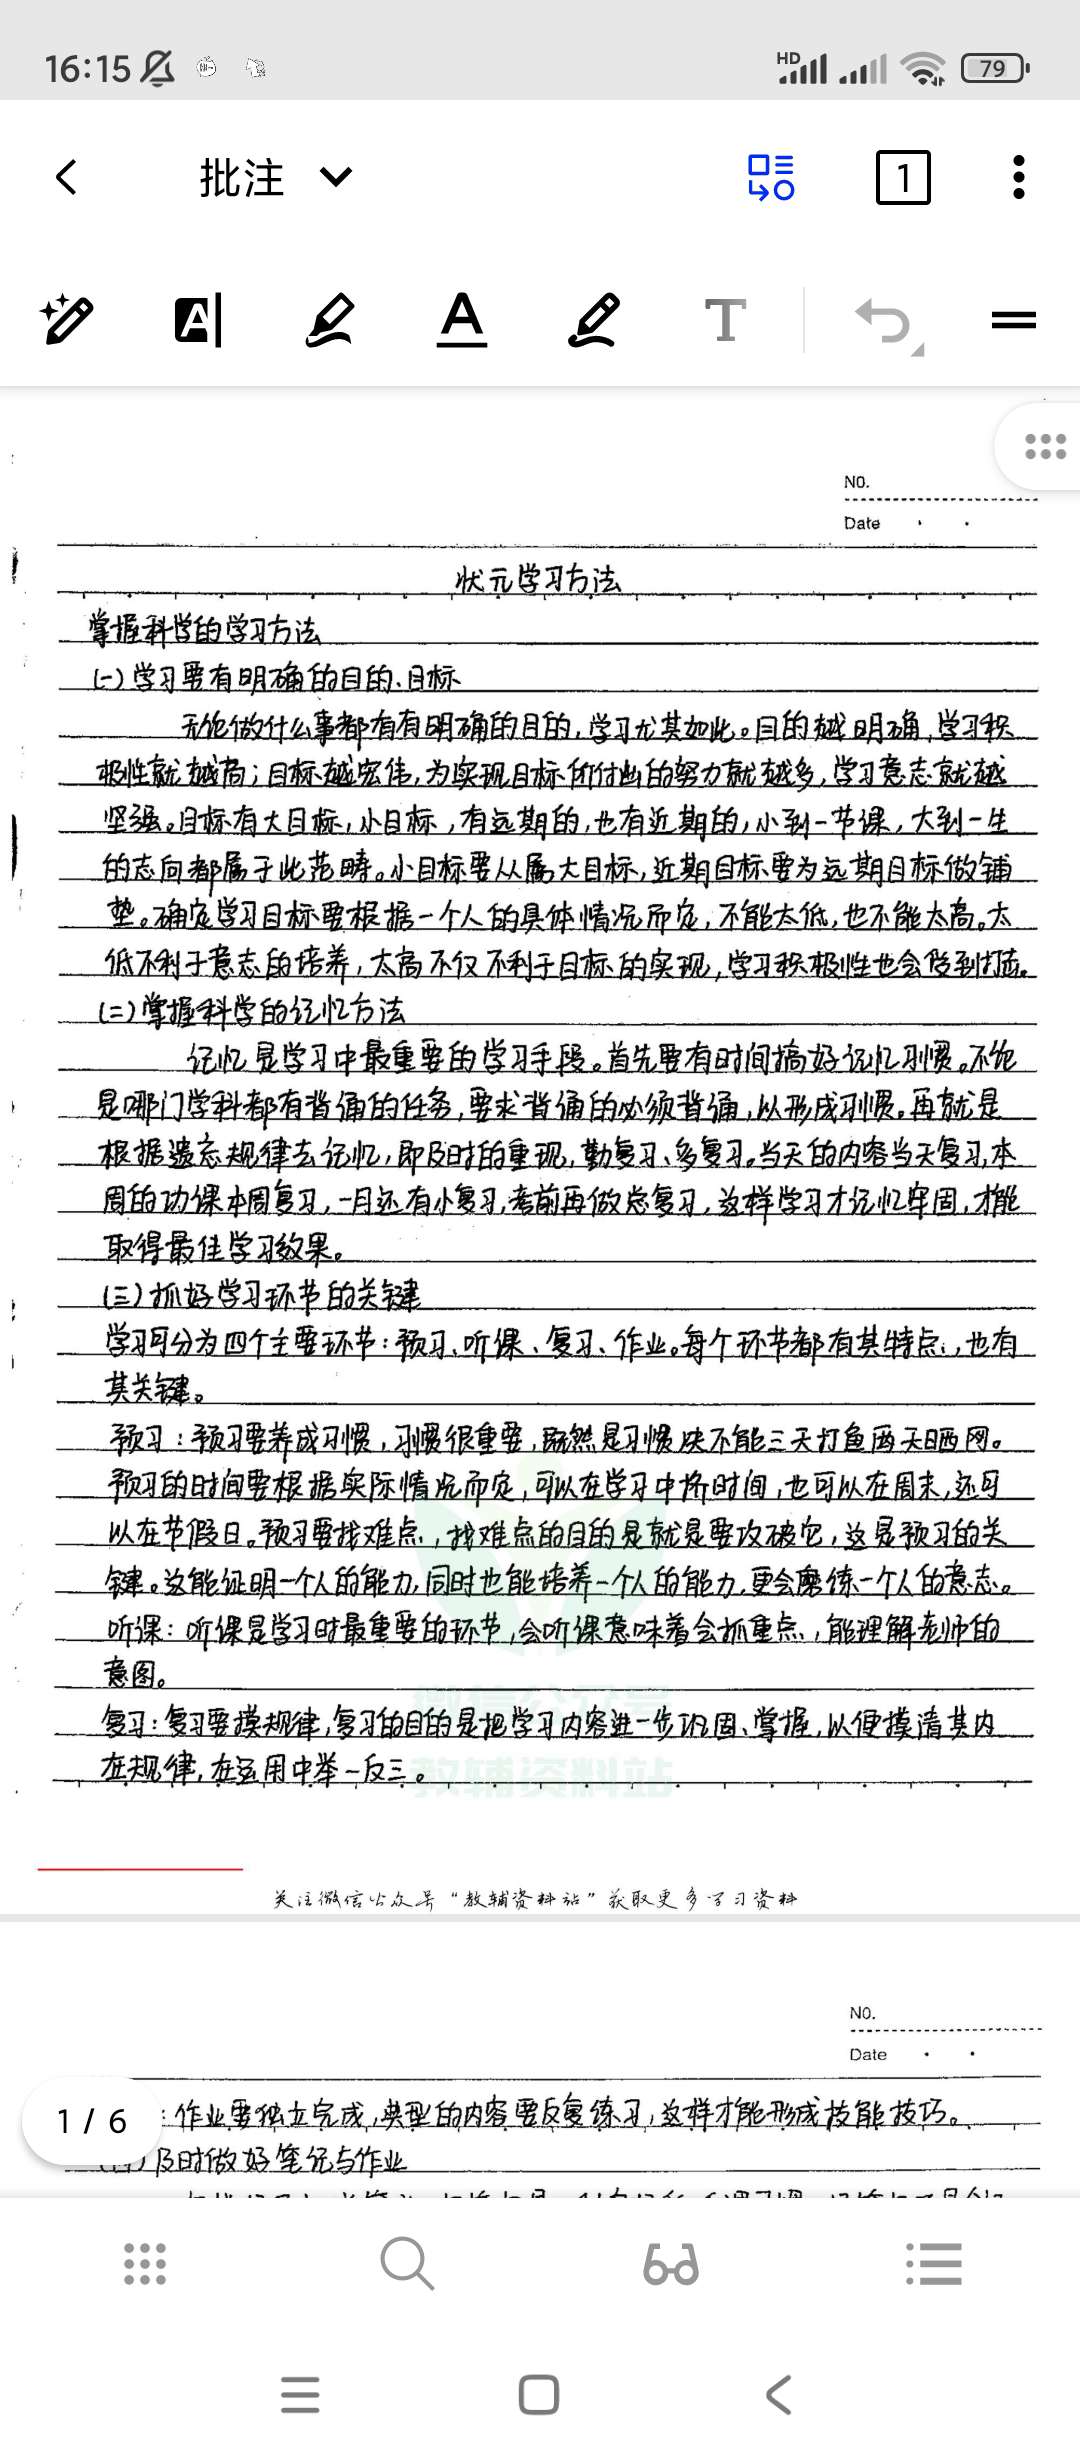 16:15
HD
79
批注
1
A
A
T
NO.
Date
状元学习方法
掌握科学的学习方法
(一)学习要有明确的目的、目标
无论做什么事都有有明确的目的,学习尤其如此。目的越明确,学习积
极性就越高;目标越宏伟,为实现目标所付出的努力就越多,学习意志就越
坚强。目标有大目标,小目标,有远期的,也有近期的,小到一节课,大到一生
的志向都属于此范畴。小目标要从属大目标,近期目标要为远期目标做铺
垫。确定学习目标要根据一个人的具体情况而定,不能太低,也不能太高。太
低不利于意志的培养,太高不仅不利于目标的实现,学习积极性也会受到打击。
(二)掌握科学的记忆方法
记忆是学习中最重要的学习手段。首先要有时间搞好记忆习惯。不论
是哪门学科都有背诵的任务,要求背诵的必须背诵,以形成习惯。再就是
根据遗忘规律去记忆,即及时的重现,勤复习、多复习。当天的内容当天复习,本
周的功课本周复习,一月还有小复习,考前再做总复习,这样学习才记忆牢固,才能
取得最佳学习效果。
(三)抓好学习环节的关键
学习可分为四个主要环节:预习、听课、复习、作业。每个环节都有其特点,也有
其关键。
预习:预习要养成习惯,习惯很重要,既然是习惯决不能三天打鱼两天晒网。
预习的时间要根据实际情况而定,可以在学习中挤时间,也可以在周末,还可
以在节假日。预习要找难点,找难点的目的是就是要攻破它,这是预习的关
键。这能证明一个人的能力,同时也能培养一个人的能力,更会磨练一个人的意志。
听课:听课是学习时最重要的环节,会听课意味着会抓重点,能理解老师的
意图。
复习:复习要摸规律,复习的目的是把学习内容进一步巩固、掌握,以便摸清其内
在规律,在运用中举一反三。
微信公众号
教辅资料站
关注微信公众号“教辅资料站”获取更多学习资料
NO.
Date
:作业要独立完成,典型的内容要反复练习,这样才能形成技能技巧。
1 / 6
(四)及时做好笔记与作业